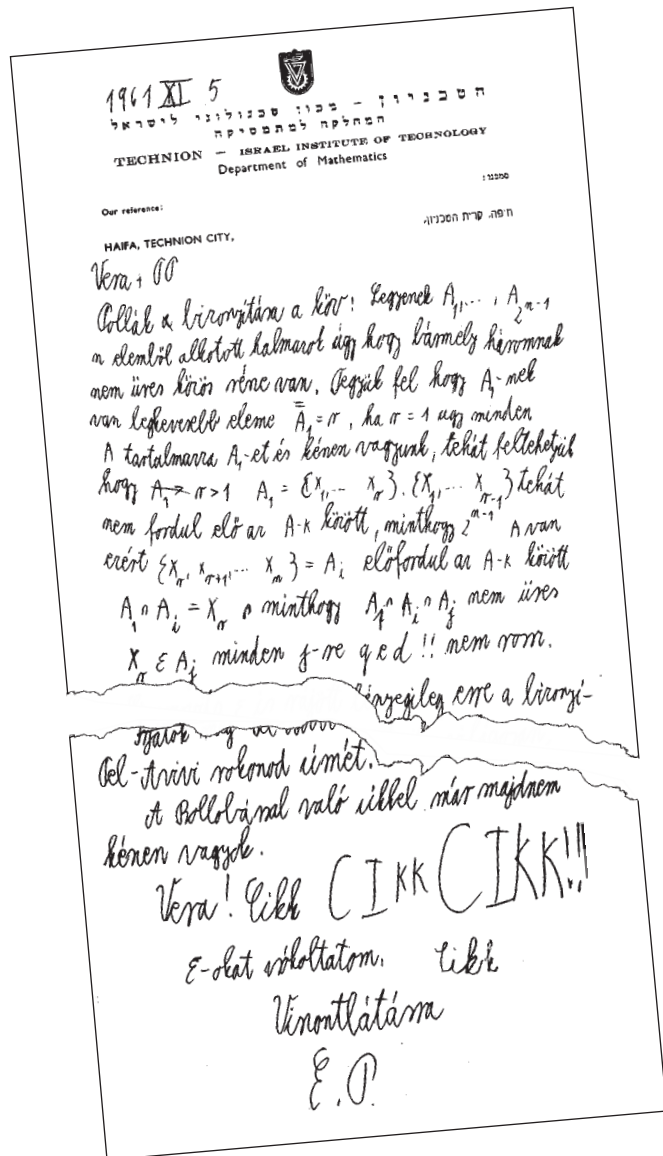 1961 XI 5
הטכניון – מכון טכנולוגי לישראל
המחלקה למתמטיקה
TECHNION – ISRAEL INSTITUTE OF TECHNOLOGY
Department of Mathematics
סמננו:
Our reference:
חיפה, קרית הטכניון,
HAIFA, TECHNION CITY,
Vera +
Pollák bizonyítása a köv: Legyenek A₁,..., A₂ⁿ⁻¹
n elemből alkotott halmazok úgy hogy bármely háromnak
nem üres közös része van. Tegyük fel hogy A₁-nek
van legkevesebb eleme A̿₁ = r, ha r = 1 úgy minden
A tartalmazza A₁-et és készen vagyunk, tehát feltehetjük
hogy r > 1 A₁ = {x₁,... xᵣ}. {x₁,... xᵣ₋₁} tehát
nem fordul elő az A-k között, minthogy 2ⁿ⁻¹ A van
ezért {xᵣ, xᵣ₊₁,... xₙ} = Aᵢ előfordul az A-k között
A₁ ∩ Aᵢ = xᵣ s minthogy A₁ ∩ Aᵢ ∩ Aⱼ nem üres
xᵣ ε Aⱼ minden j-re q e d !! nem rossz.
lényegileg erre a bizonyí-
Tel-Avivi rokonod címét.
A Bollobással való cikkel már majdnem
készen vagyok.
Vera! Cikk CIKK CIKK!!!
E-okat csókoltatom. Cikk
Viszontlátásra
E.P.